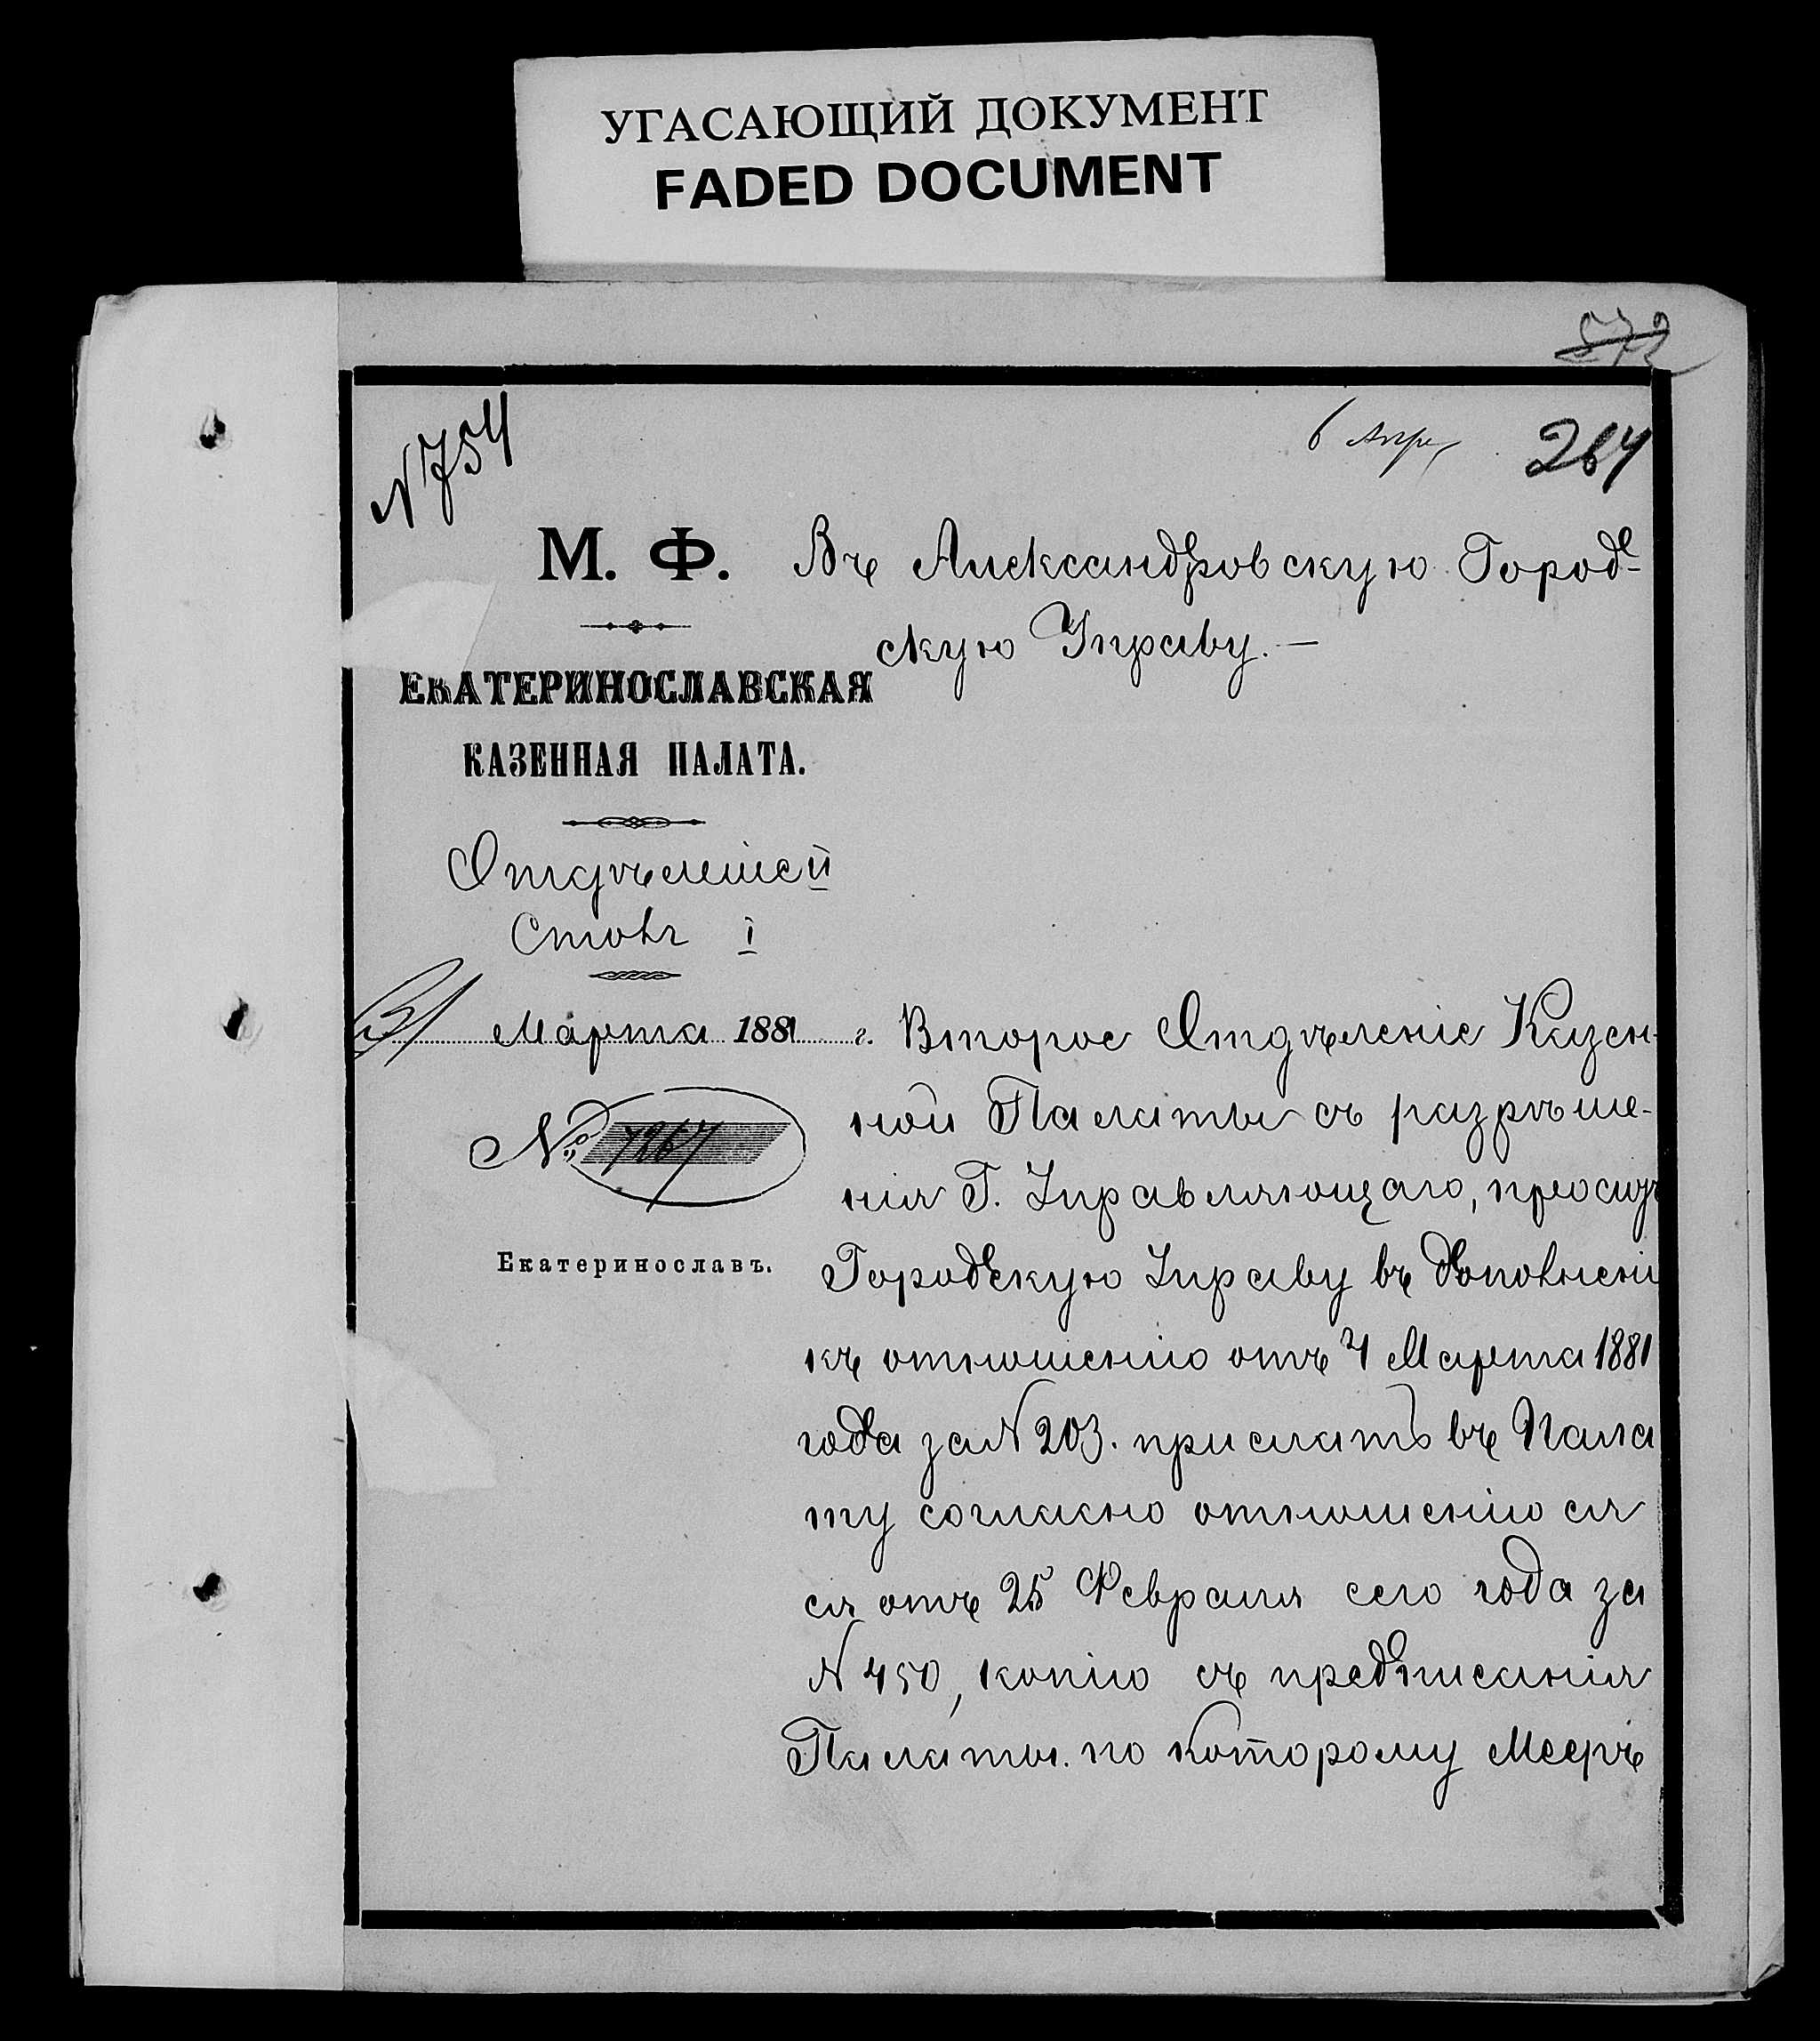 УГАСАЮЩИЙ ДОКУМЕНТ
FADED DOCUMENT
572
N 754
6 Апр.
264
М. Ф.
ЕКАТЕРИНОСЛАВСКАЯ
КАЗЕННАЯ ПАЛАТА.
Отдѣленіе II
Столъ I
31 Марта 1881 г.
№ 7267
Екатеринославъ.
Въ Александровскую Город-
скую Управу. —
Второе Отдѣленіе Казен-
ной Палаты съ разрѣше-
нія Г. Управляющаго, проситъ
Городскую Управу въ дополнені
къ отношенію отъ 4 Марта 1881
года за N 203. прислать въ Пала
ту согласно отношенію ея
отъ 25 Февраля сего года за
N 450, копію съ предписанія
Палаты. по которому Мееръ